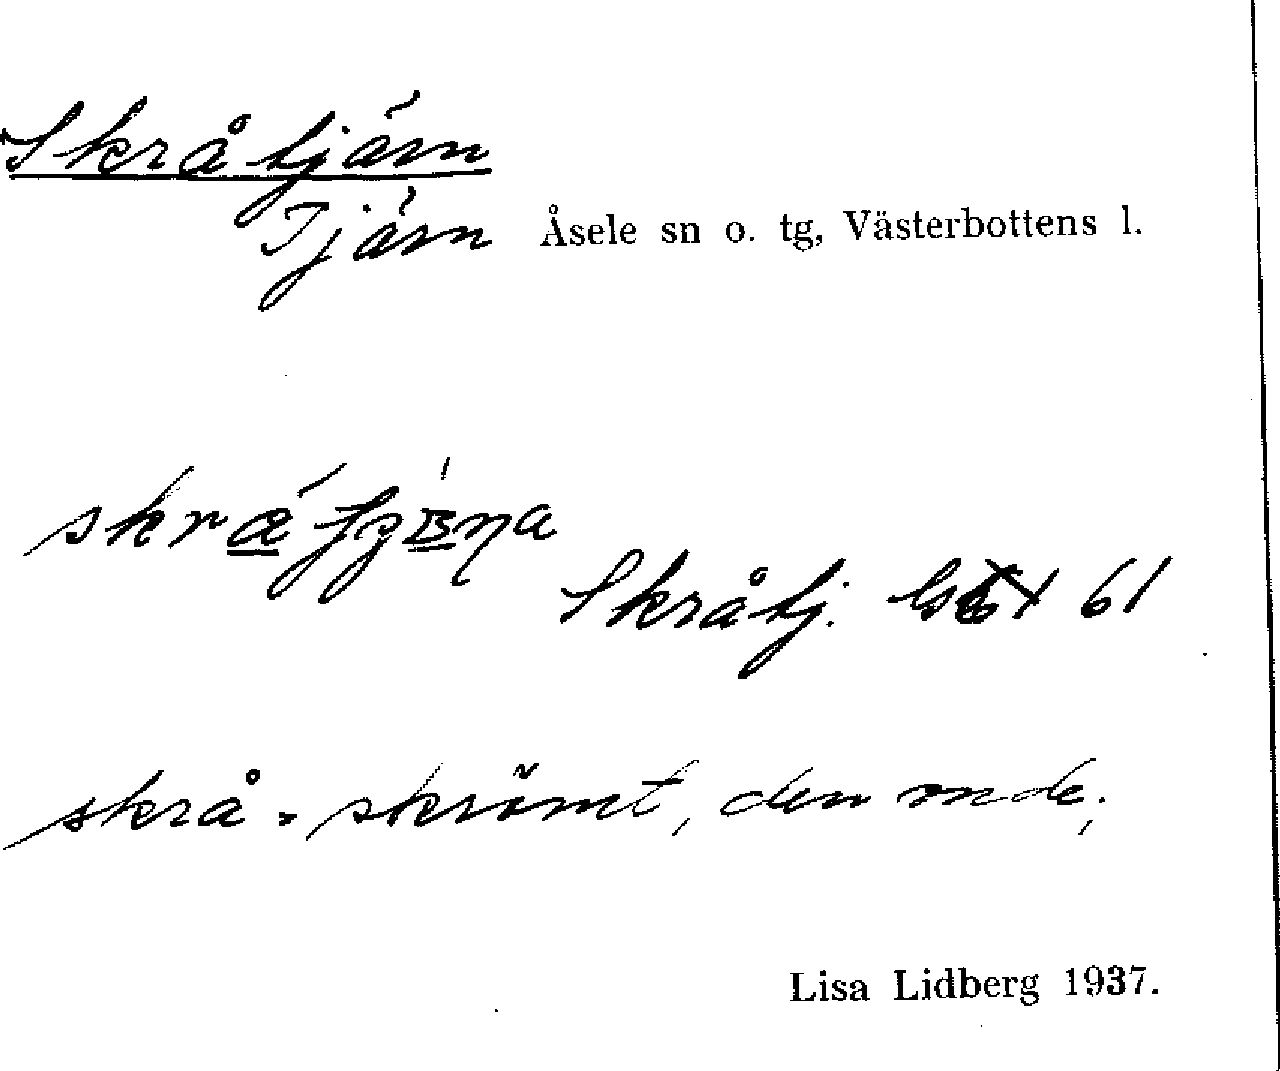 Skråtjärn
Tjärn Åsele sn o. tg, Västerbottens l.
Skråtj. 61
skrå = skrömt, den onde;
Lisa Lidberg 1937.